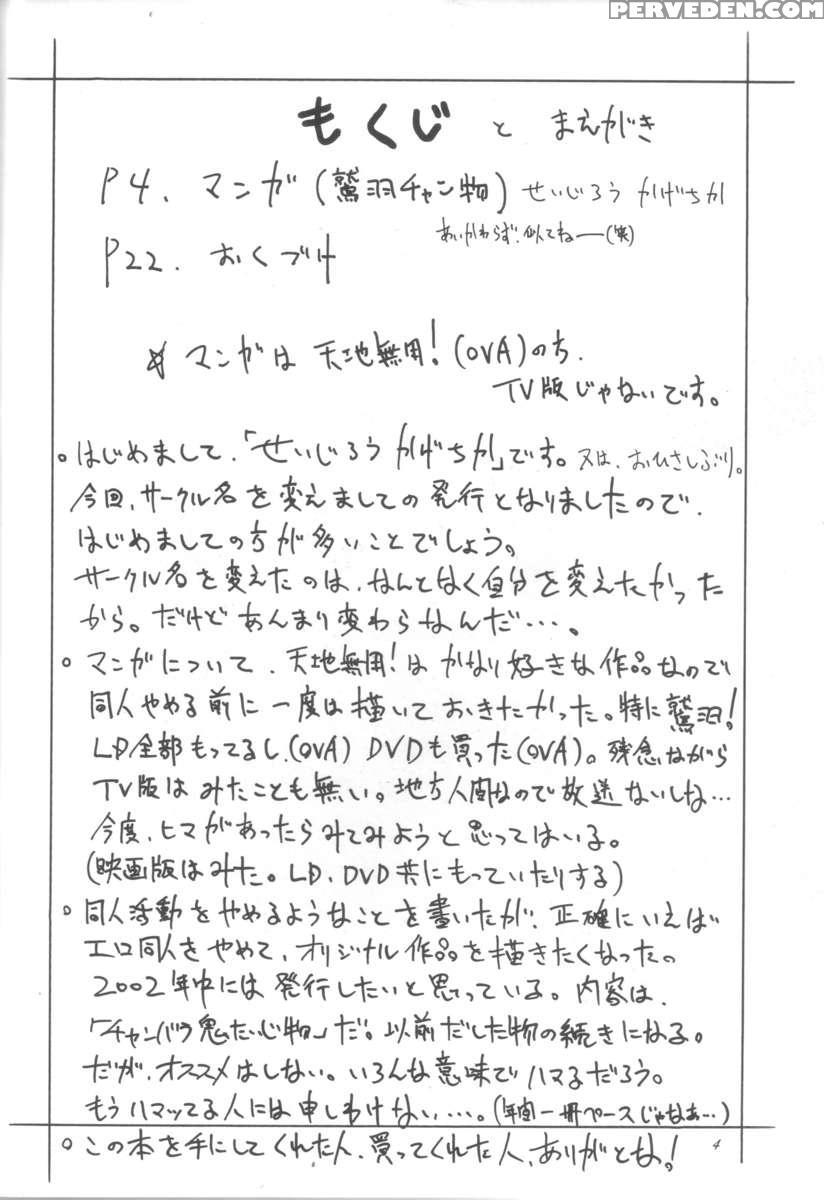 PERVEDEN.COM
もくじ と まえがき
P4. マンガ(鷲羽チャン物) せいじろう かげちか
あいかわらず、似てねー(笑)
P22. おくづけ
☆ マンガは 天地無用!(OVA)のち.
TV版じゃないです。
○はじめまして.「せいじろう かげちか」です。又は、おひさしぶり。
今回、サークル名を変えましての発行となりましたので、
はじめましての方が多いことでしょう。
サークル名を変えたのは、なんとなく自分を変えたかった
から。だけどあんまり変わらなんだ・・・。
○ マンガについて、天地無用!はかなり好きな作品なので
同人やめる前に一度は描いておきたかった。特に鷲羽!
LD全部もってるし、(OVA) DVDも買った(OVA)。残念ながら
TV版はみたことも無い。地方人間なので放送ないしな…
今度、ヒマがあったらみてみようと思ってはいる。
(映画版はみた。LD、DVD共にもっていたりする)
○ 同人活動をやめるようなことを書いたが、正確にいえば
エロ同人をやめて、オリジナル作品を描きたくなったの
2002年中には発行したいと思っている。内容は、
「チャンバラ鬼たいじ物」だ。以前だした物の続きになる。
だが、オススメはしない。いろんな意味でハマるだろう。
もうハマッてる人には申しわけない・・・・。(年間一冊ペースじゃなぁ…)
○ この本を手にしてくれた人、買ってくれた人、ありがとな!
4